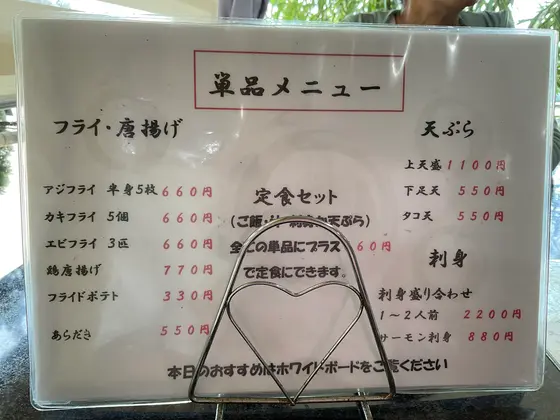 単品メニュー
フライ・唐揚げ
アジフライ 半身5枚 660円
カキフライ 5個 660円
エビフライ 3匹 660円
鶏唐揚げ 770円
フライドポテト 330円
あらだき 550円
定食セット
(ご飯・
天ぷら)
全ての単品にプラス 60円
で定食にできます。
天ぷら
上天盛 1100円
下足天 550円
タコ天 550円
刺身
刺身盛り合わせ
1~2人前 2200円
サーモン刺身 880円
本日のおすすめはホワイドボードをご覧ください